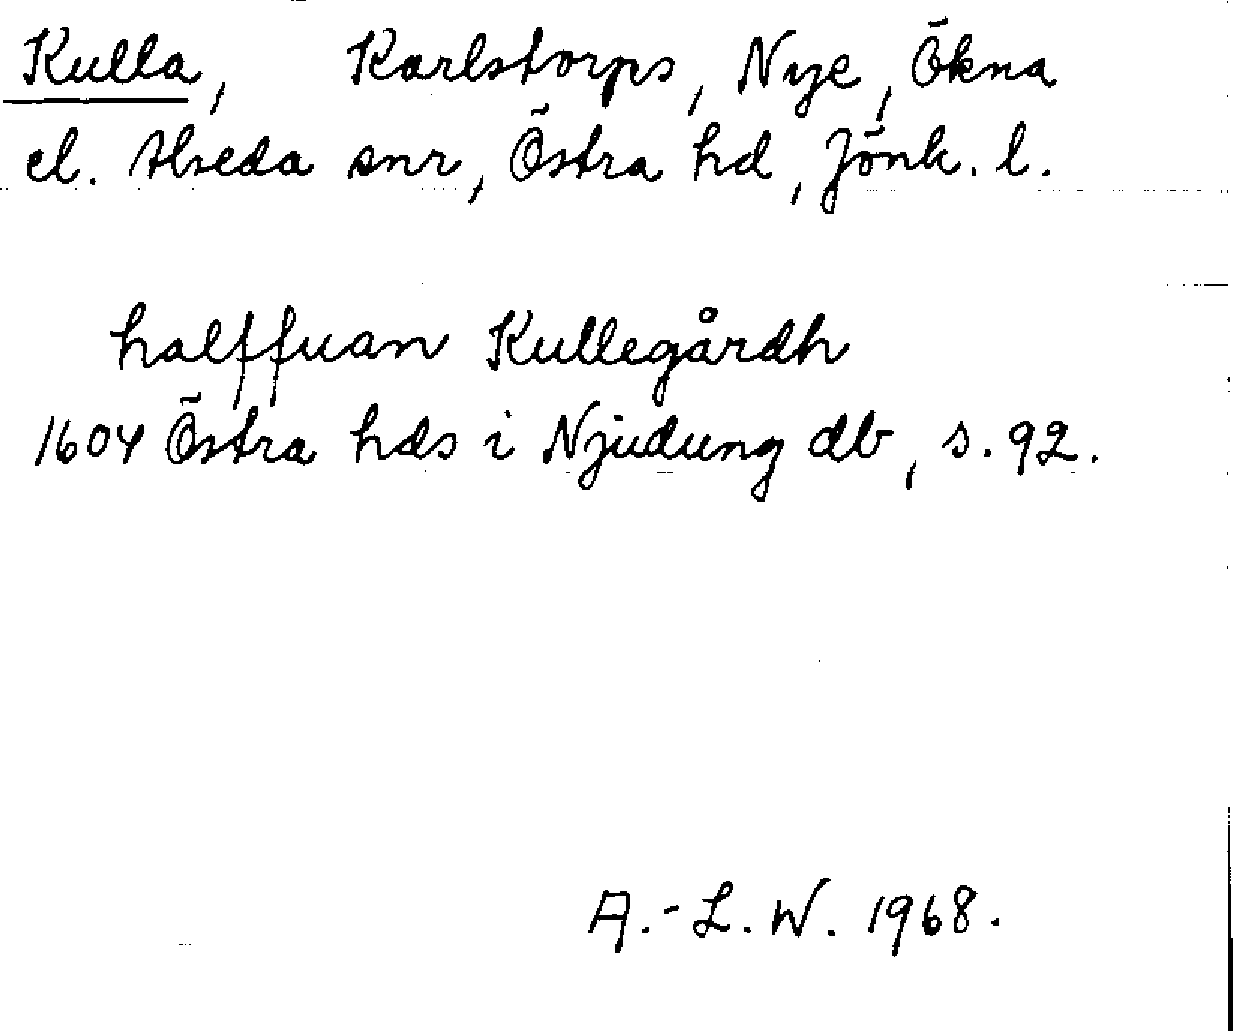 Kulla, Karlstorps, Nye, Ökna
el. Alseda snr, Östra hd, Jönk. l.
halffuan Kullegårdh
1604 Östra hds i Njudung db, s. 92.
A.-L. W. 1968.